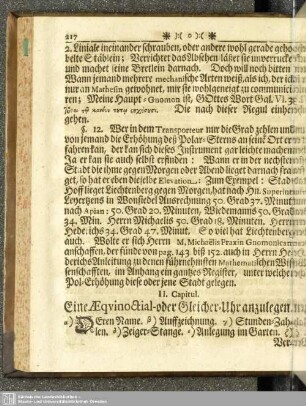 217
2. Liniale ineinander schrauben, oder andere wohl gerade gehobelte
belte Stäblein; Verrichtet das Absehen/ läßet sie unverruckt
und machet seine Bretlein darnach. Doch will noch bitten
Wann jemand mehrere mechanische Arten weiß, als ich, der ich
nur an Mathesin gewohnet, mir sie wohlgeneigt zu communiciren
ren; Meine Haupt-Gnomon ist, GOttes Wort Gal. VI. 3.
Die nach dieser Regul einher
gehen.
§. 12. Wer in dem Transporteur nur die Grad zehlen und
von jemand die Erhöhung deß Polar-Sterns an seinem Ort er-
fahren kan, der kan sich dieses Instrument gar leicht machen
Ja er kan sie auch selbst erfinden: Wann er in der nechsten
Stadt die ihme gegen Morgen oder Abend lieget darnach fra-
get, so hat er eben dieselbe Elevation.: Zum Exempel: Stadt
Hoff lieget Liechtenberg gegen Morgen, hat nach Hn. Superint.
Loyerzens in Wonsiedel Ausrechnung 50. Grad 37. Minut
nach Apian: 50. Grad 20. Minuten, Wiedemann 50. Grad
34. Min. Herrn Michaelis 50. Grad 18. Minuten. Herrn
Hede. ichs 34. Grad 47. Minut. So viel hat Liechtenberg
auch. Wolte er sich Herrn M. Michaelis Praxin Gnomonicam
anschaffen, der funde von pag. 143. biß 152. auch in Herrn
derichs Anleitung zu denen fürnehmsten Mathematischen Wiss
senschafften, im Anhang ein gantzes Register, unter welcher
Pol-Erhöhung diese oder jene Stadt gelegen.
II. Capitul.
Eine Æqvinoctial- oder Gleicher-Uhr anzulegen.
α) Deren Name. β) Auffzeichnung. γ) Stunden-Zah-
len. δ) Zeiger-Stange. ε) Anlegung im Garten.